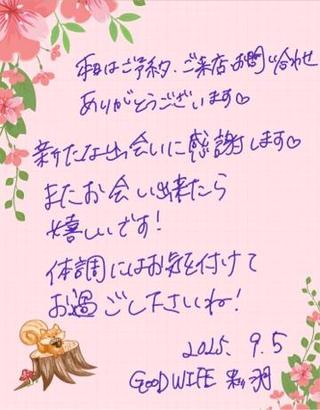 本日はご予約、ご来店お問い合わせ
ありがとうございます♡
新たな出会いに感謝します♡
またお会い出来たら
嬉しいです!
体調にはお気を付けて
お過ごし下さいね!
2025. 9.5
GOOD WIFE